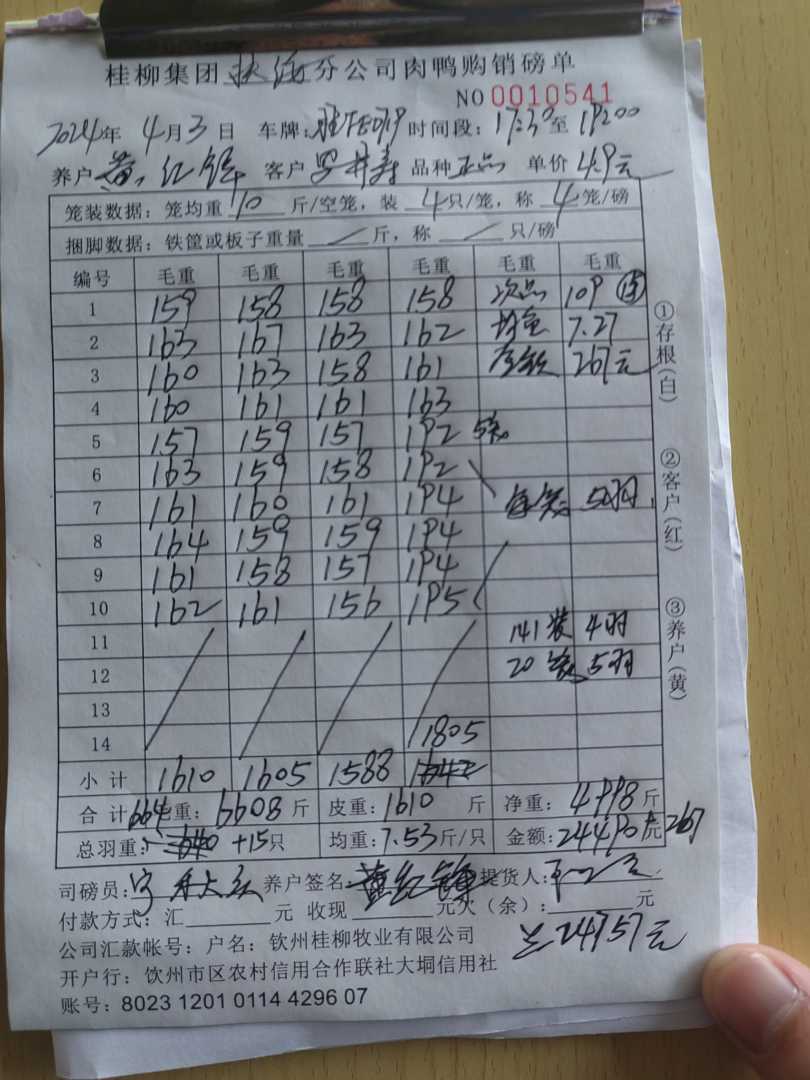 桂柳集团 分公司肉鸭购销磅单
NO 0010541
2024年 4月3日 车牌: 时间段:17:30至19:00
养户 黄红锋 客户 罗井寿 品种 正品 单价 4.9元
笼装数据:笼均重 10 斤/空笼,装 4 只/笼,称 4 笼/磅
捆脚数据:铁筐或板子重量 / 斤,称 / 只/磅
编号 毛重 毛重 毛重 毛重 毛重 毛重
1 159 158 158 158 次品 109 15
2 163 167 163 162 均重 7.27
3 160 163 158 161 金额 267元
4 160 161 161 163
5 157 159 157 192
6 163 159 158 192
7 161 160 161 194 每笼 5羽
8 164 159 159 194
9 161 158 157 194
10 162 161 156 195
11 141 装 4羽
12 20 笼 5羽
13
14 1805
小计 1610 1605 1588 1642
合计 毛重:6608斤 皮重:1610斤 净重:4998斤
总羽重: 664 640 +15只 均重:7.53斤/只 金额:24490元 267
司磅员: 养户签名: 黄红锋 提货人:
付款方式:汇 元 收现 元欠(余): 元
24757元
公司汇款帐号:户名:钦州桂柳牧业有限公司
开户行:饮州市区农村信用合作联社大垌信用社
账号:8023 1201 0114 4296 07
①存根(白)
②客户(红)
③养户(黄)